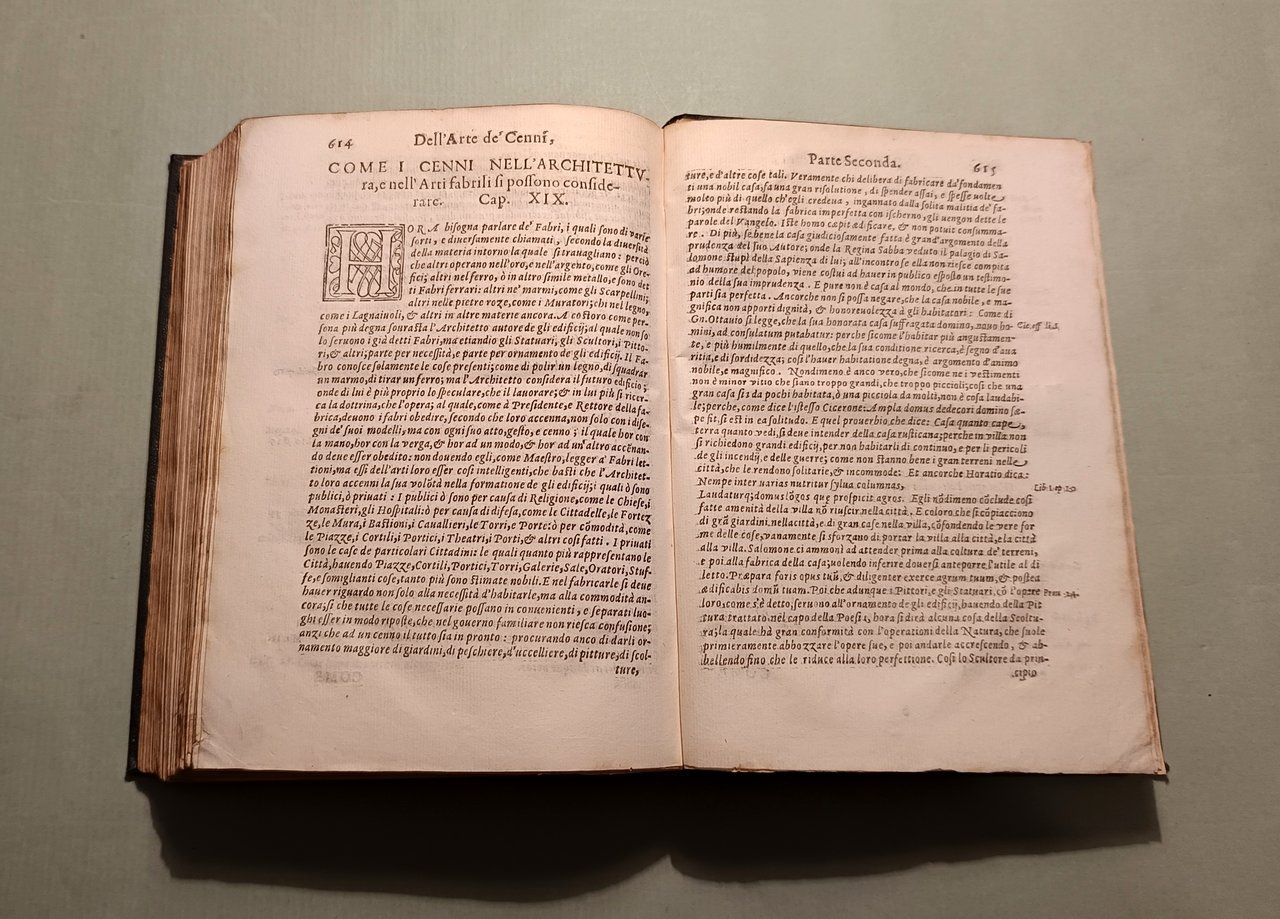 614
Dell'Arte de' Cenni,
COME I CENNI NELL'ARCHITETTV-
ra, e nell'Arti fabrili si possono conside-
rare. Cap. XIX.
HORA bisogna parlare de' Fabri, i quali sono di varie
sorti, e diuersamente chiamati, secondo la diuersità
della materia intorno la quale si trauagliano: perciò
che altri operano nell'oro, e nell'argento, come gli Ore-
fici; altri nel ferro, ò in altro simile metallo, e sono det
ti Fabri ferrari: altri ne' marmi, come gli Scarpellini;
altri nelle pietre roze, come i Muratori; chi nel legno,
come i Legnaiuoli, & altri in altre materie ancora. A costoro come per-
sona più degna sourasta l'Architetto autore de gli edificij; al quale non so
lo seruono i già detti Fabri, ma etiandio gli Statuari, gli Scultori, i Pitto-
ri, & altri; parte per necessità, e parte per ornamento de gli edificij. Il Fa-
bro conosce solamente le cose presenti; come di polir un legno, di squadrar
un marmo, di tirar un ferro; ma l'Architetto considera il futuro edificio;
onde di lui è più proprio lo speculare, che il lauorare; & in lui più si ricer-
ca la dottrina, che l'opera; al quale, come à Presidente, e Rettore della fa-
brica, deuono i fabri obedire, secondo che loro accenna, non solo con i dise-
gni de' suoi modelli, ma con ogni suo atto, gesto, e cenno; il quale hor con
la mano, hor con la verga, & hor ad un modo, & hor ad un'altro accēnan-
do deue esser obedito: non douendo egli, come Maestro, legger a' Fabri let-
tioni, ma essi dell'arti loro esser così intelligenti, che basti che l'Architet-
to loro accenni la sua volōtà nella formatione de gli edificij; i quali ò sono
publici, ò priuati: I publici ò sono per causa di Religione, come le Chiese, i
Monasteri, gli Hospitali: ò per causa di difesa, come le Cittadelle, le Fortez
ze, le Mura, i Bastioni, i Cauallieri, le Torri, e Porte: ò per cōmodità, come
le Piazze, i Cortili, i Portici, i Theatri, i Porti, & altri così fatti. I priuati
sono le case de particolari Cittadini: le quali quanto più rappresentano le
Città, hauendo Piazze, Cortili, Portici, Torri, Galerie, Sale, Oratori, Stuf-
fe, e somiglianti cose, tanto più sono stimate nobili. E nel fabricarle si deue
hauer riguardo non solo alla necessità d'habitarle, ma alla commodità an-
cora; sì che tutte le cose necessarie possano in conuenienti, e separati luo-
ghi esser in modo riposte, che nel gouerno familiare non riesca confusione;
anzi che ad un cenno il tutto sia in pronto: procurando anco di darli or-
namento maggiore di giardini, di peschiere, d'uccelliere, di pitture, di scol-
ture,
Parte Seconda.
615
ture, e d'altre cose tali. Veramente chi delibera di fabricare da' fondamen
ti una nobil casa, fa una gran risolutione, di spender assai, e spesse uolte
molto più di quello ch'egli credeua, ingannato dalla solita malitia de' fa-
bri; onde restando la fabrica imperfetta con ischerno, gli uengon dette le
parole del Vangelo. Iste homo cæpit ædificare, & non potuit consumma-
re. Di più, se bene la casa giudiciosamente fatta è grand'argomento della
prudenza del suo Autore; onde la Regina Sabba veduto il palagio di Sa-
lomone stupì della Sapienza di lui; all'incontro se ella non riesce compita
ad humore del popolo, viene costui ad hauer in publico esposto un testimo-
nio della sua imprudenza. E pure non è casa al mondo, che in tutte le sue
parti sia perfetta. Ancorche non si possa negare, che la casa nobile, e ma-
gnifica non apporti dignità, & honoreuolezza à gli habitatori: Come di
Gn. Ottauio si legge, che la sua honorata casa suffragata domino, nouo ho- Cic. off. li. 1.
mini, ad consulatum putabatur: perche sicome l'habitar più angustamen-
te, e più humilmente di quello, che la sua conditione ricerca, è segno d'aua
ritia, e di sordidezza; così l'hauer habitatione degna, è argomento d'animo
nobile, e magnifico. Nondimeno è anco vero, che sicome ne i vestimenti
non è minor vitio che siano troppo grandi, che troppo piccioli; così che una
gran casa sia da pochi habitata, ò una picciola da molti, non è cosa laudabi-
le; perche, come dice l'istesso Cicerone: Ampla domus dedecori domino sæ-
pe fit, si est in ea solitudo. E quel prouerbio, che dice: Casa quanto cape,
terra quanto vedi, si deue intender della casa rusticana; perche in villa non
si richiedono grandi edificij, per non habitarli di continuo, e per li pericoli
de gli incendij, e delle guerre; come non stanno bene i gran terreni nelle
città, che le rendono solitarie, & incommode: Et ancorche Horatio dica:
Nempe inter varias nutritur sylua columnas, Lib. 1. ep. 10.
Laudaturq; domus lōgos quæ prospicit agros. Egli nōdimeno cōclude così
fatte amenità della villa nō riuscir nella città. E coloro che si cōpiacciono
di grā giardini nella città, e di gran case nella villa, cōfondendo le vere for
me delle cose, vanamente si sforzano di portar la villa alla città, e la città
alla villa. Salomone ci ammonì ad attender prima alla coltura de' terreni,
e poi alla fabrica della casa; volendo inferire douersi anteporre l'utile al di
letto. Præpara foris opus tuū, & diligenter exerce agrum tuum, & postea
ædificabis domū tuam. Poi che adunque i Pittori, e gli Statuari, cō l'opere Prou. 24.
loro, come s'è detto, seruono all'ornamento de gli edificij, hauendo della Pit
tura trattato nel capo della Poesia, hora si dirà alcuna cosa della Scoltu-
ra; la quale hà gran conformità con l'operationi della Natura, che suole
primieramente abbozzare l'opere sue, e poi andarle accrescendo, & ab-
bellendo fino che le riduce alla loro perfettione. Così lo Scultore da prin-
cipio